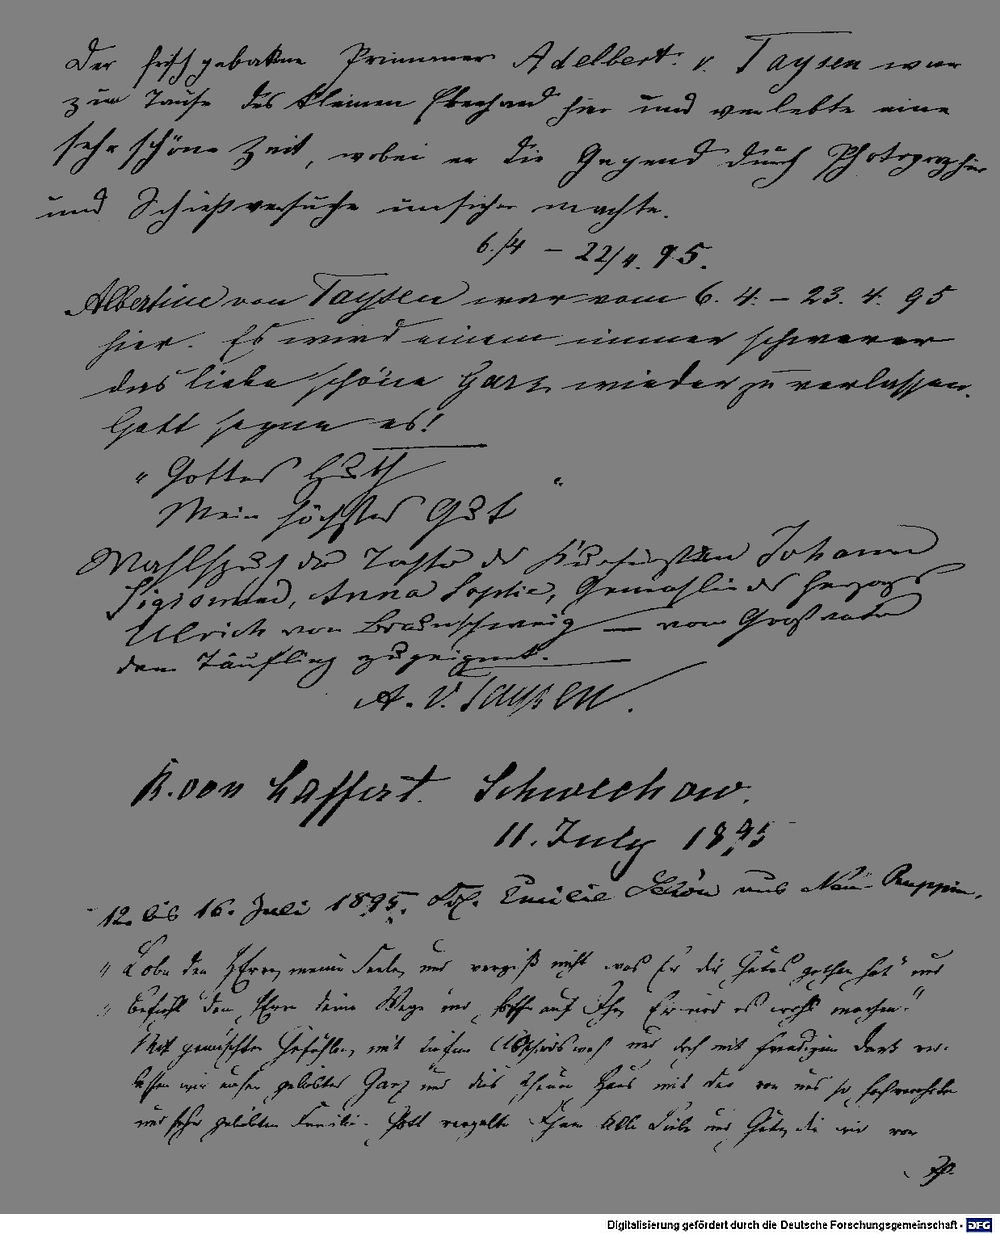 Der frisch gebackne Primaner Adelbert v. Taysen war
zur Taufe des kleinen Eberhard hier und verlebte eine
sehr schöne Zeit, wobei er die Gegend durch Photographier
und Schießversuche unsicher machte.
6./4 – 22/4. 95.
Albertine von Taysen war vom 6. 4. – 23. 4. 95
hier. Es wird einem immer schwerer
das liebe schöne Garz wieder zu verlassen.
Gott segne es!
„Gottes Huth
Mein höchstes Gut“
Wahlspruch der Tochter des Kurfürsten Johann
Sigismund, Anna Sophie, Gemahlin des Herzogs
Ulrich von Braunschweig — vom Großvater
dem Täufling zugeeignet.
A. v. Taysen.
R. von Laffert. Schwechow.
11. July 1895
12. bis 16. Juli 1895. Emilie Schön aus Neu-Ruppin.
„Lobe den HErrn, meine Seele, und vergiß nicht was Er dir Gutes gethan hat“ und
„Befiehl dem HErrn deine Wege und hoffe auf Ihn, Er wird es wohl machen.“
Mit gemischten Gefühlen, mit tiefem Abschiedsweh und doch mit freudigem Dank ver-
lassen wir unser geliebtes Garz und das theure Haus mit der von uns so hochverehrten
und sehr geliebten Familie. Gott vergelte Ihnen alle Liebe und Güte, die wir von